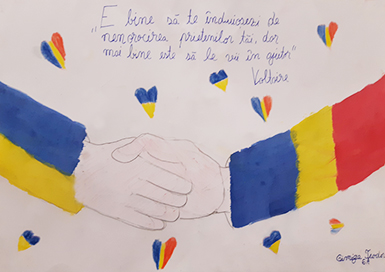 „E bine să te înduioșezi de
nenorocirea prietenilor tăi, dar
mai bine este să le vii în ajutor"
Voltaire